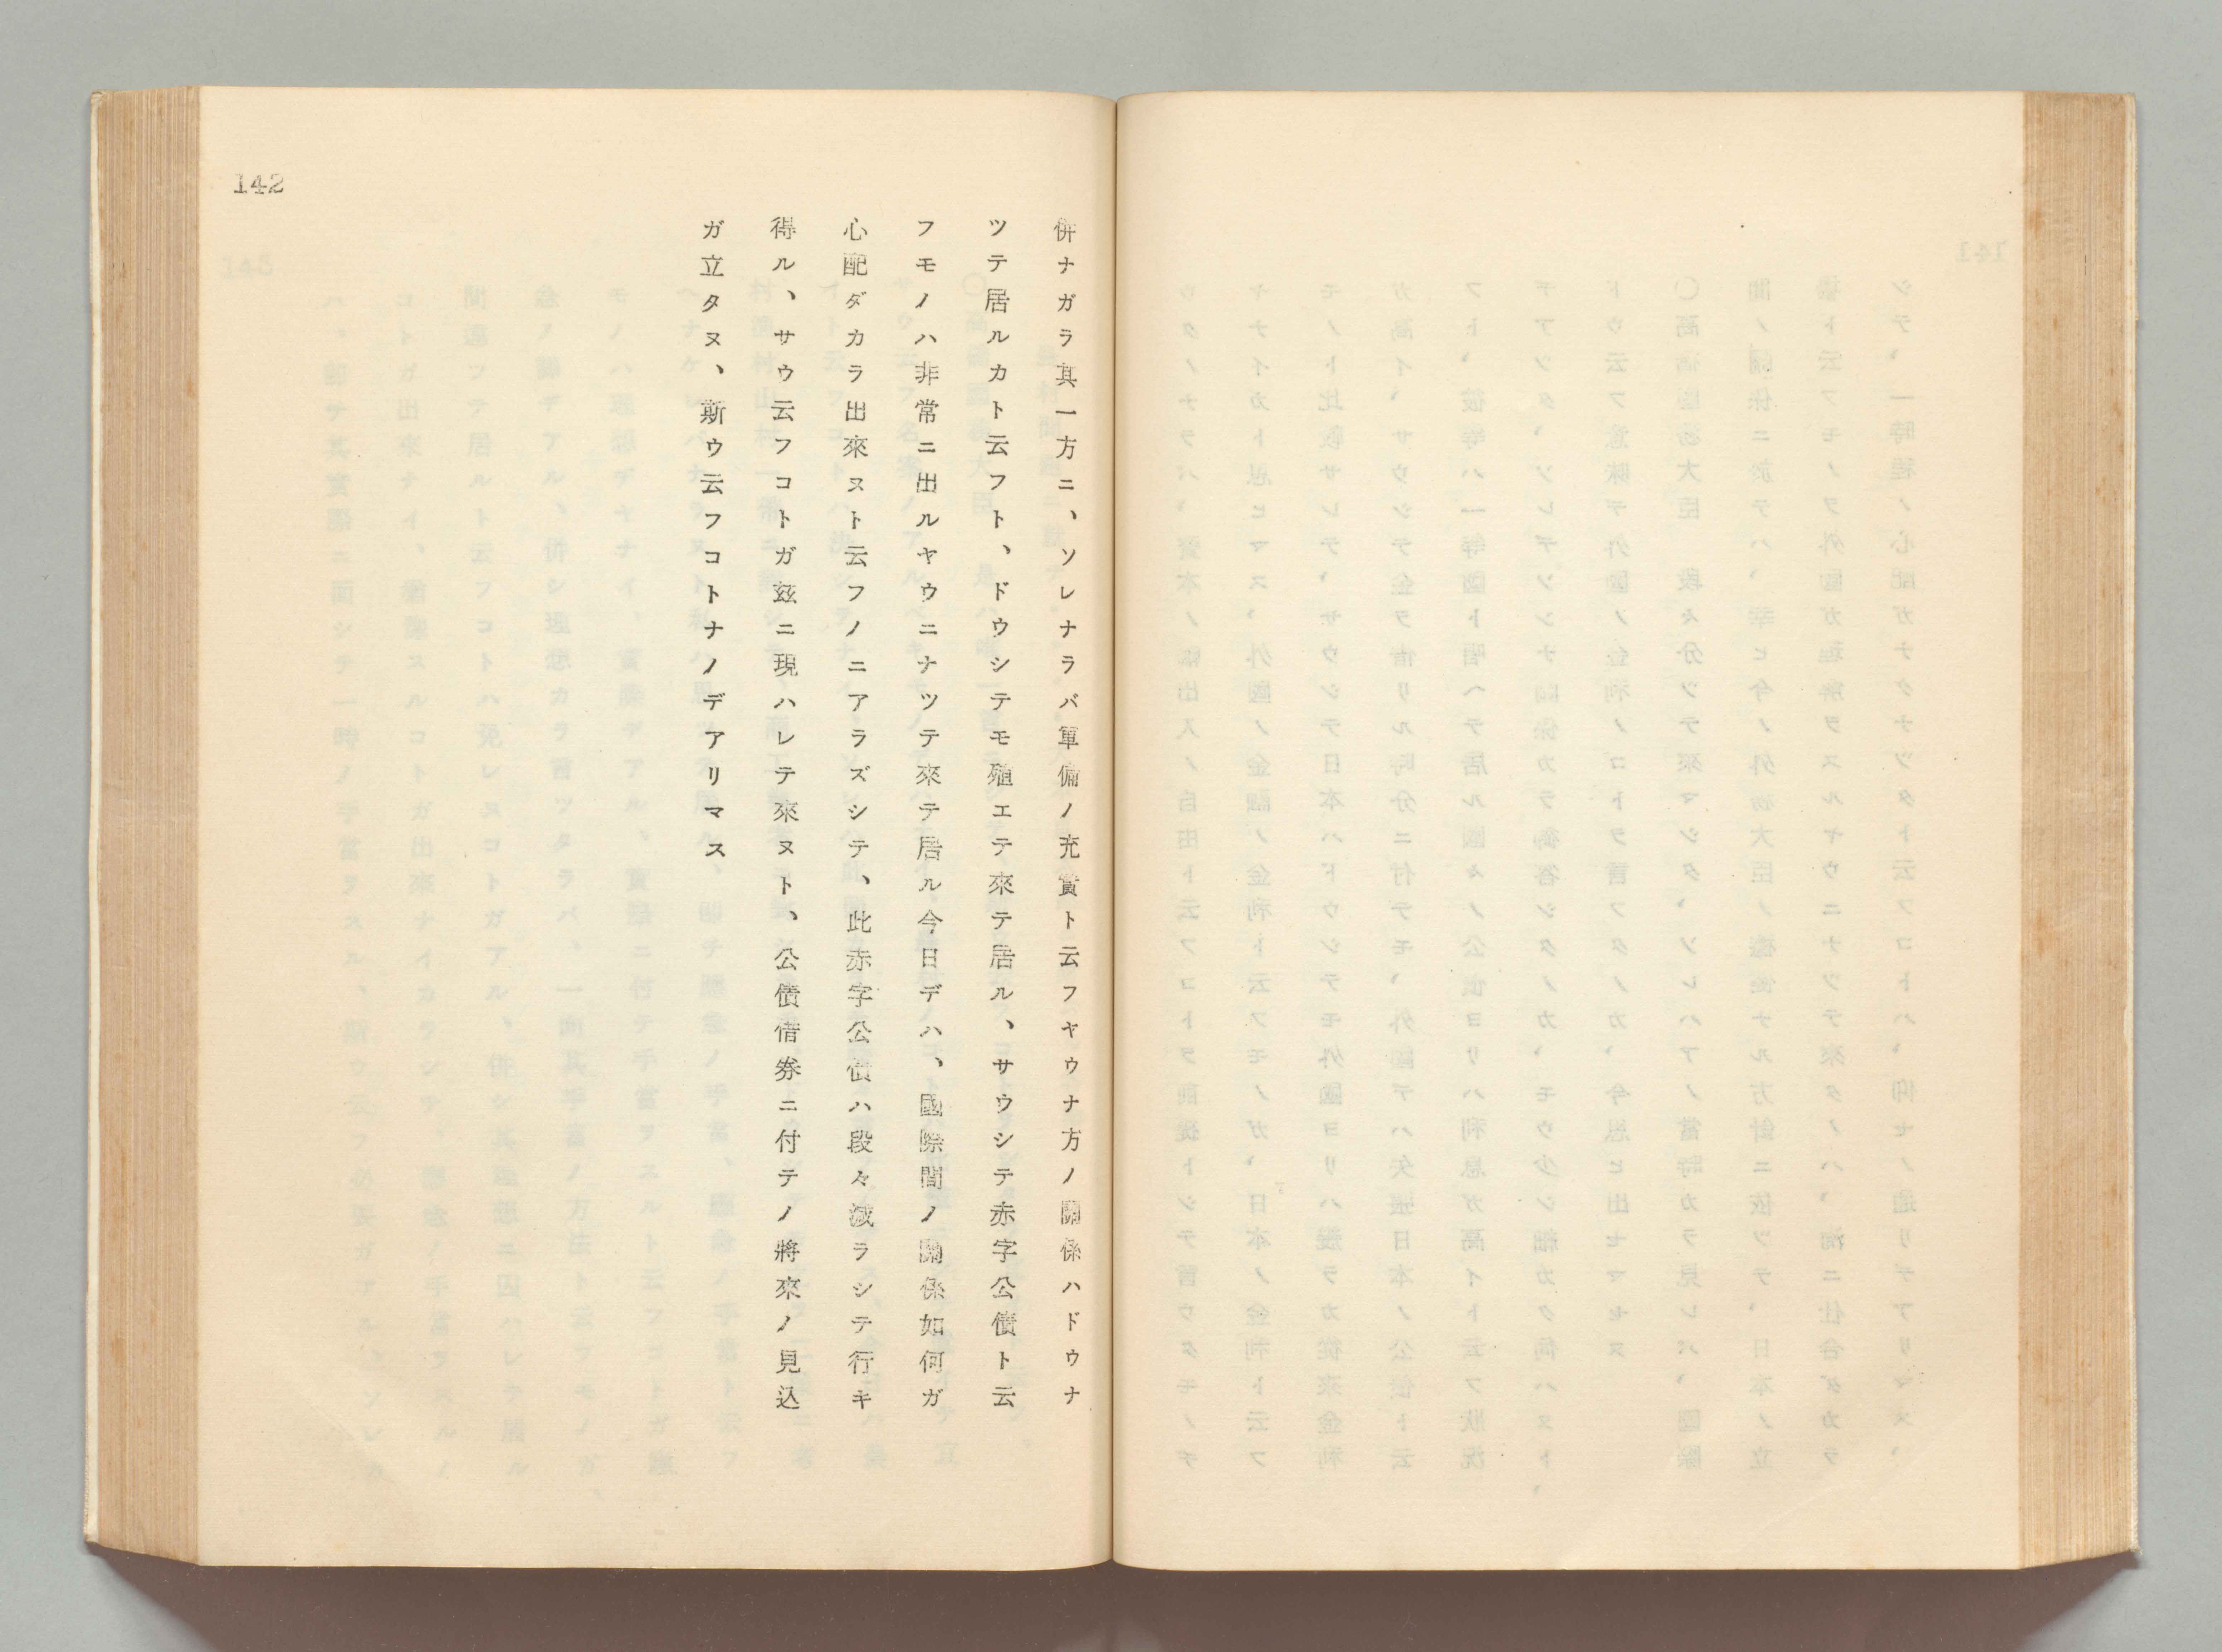 142
併ナガラ其一方ニ、ソレナラバ軍備ノ充實ト云フヤウナ方ノ關係ハドウナ
ツテ居ルカト云フト、ドウシテモ殖エテ來テ居ル、サウシテ赤字公債ト云
フモノハ非常ニ出ルヤウニナツテ來テ居ル今日デハ、國際間ノ關係如何ガ
心配ダカラ出來ヌト云フノニアラズシテ、此赤字公債ハ段々減ラシテ行キ
得ル、サウ云フコトガ玆ニ現ハレテ來ヌト、公債借券ニ付テノ將來ノ見込
ガ立タヌ、斯ウ云フコトナノデアリマス